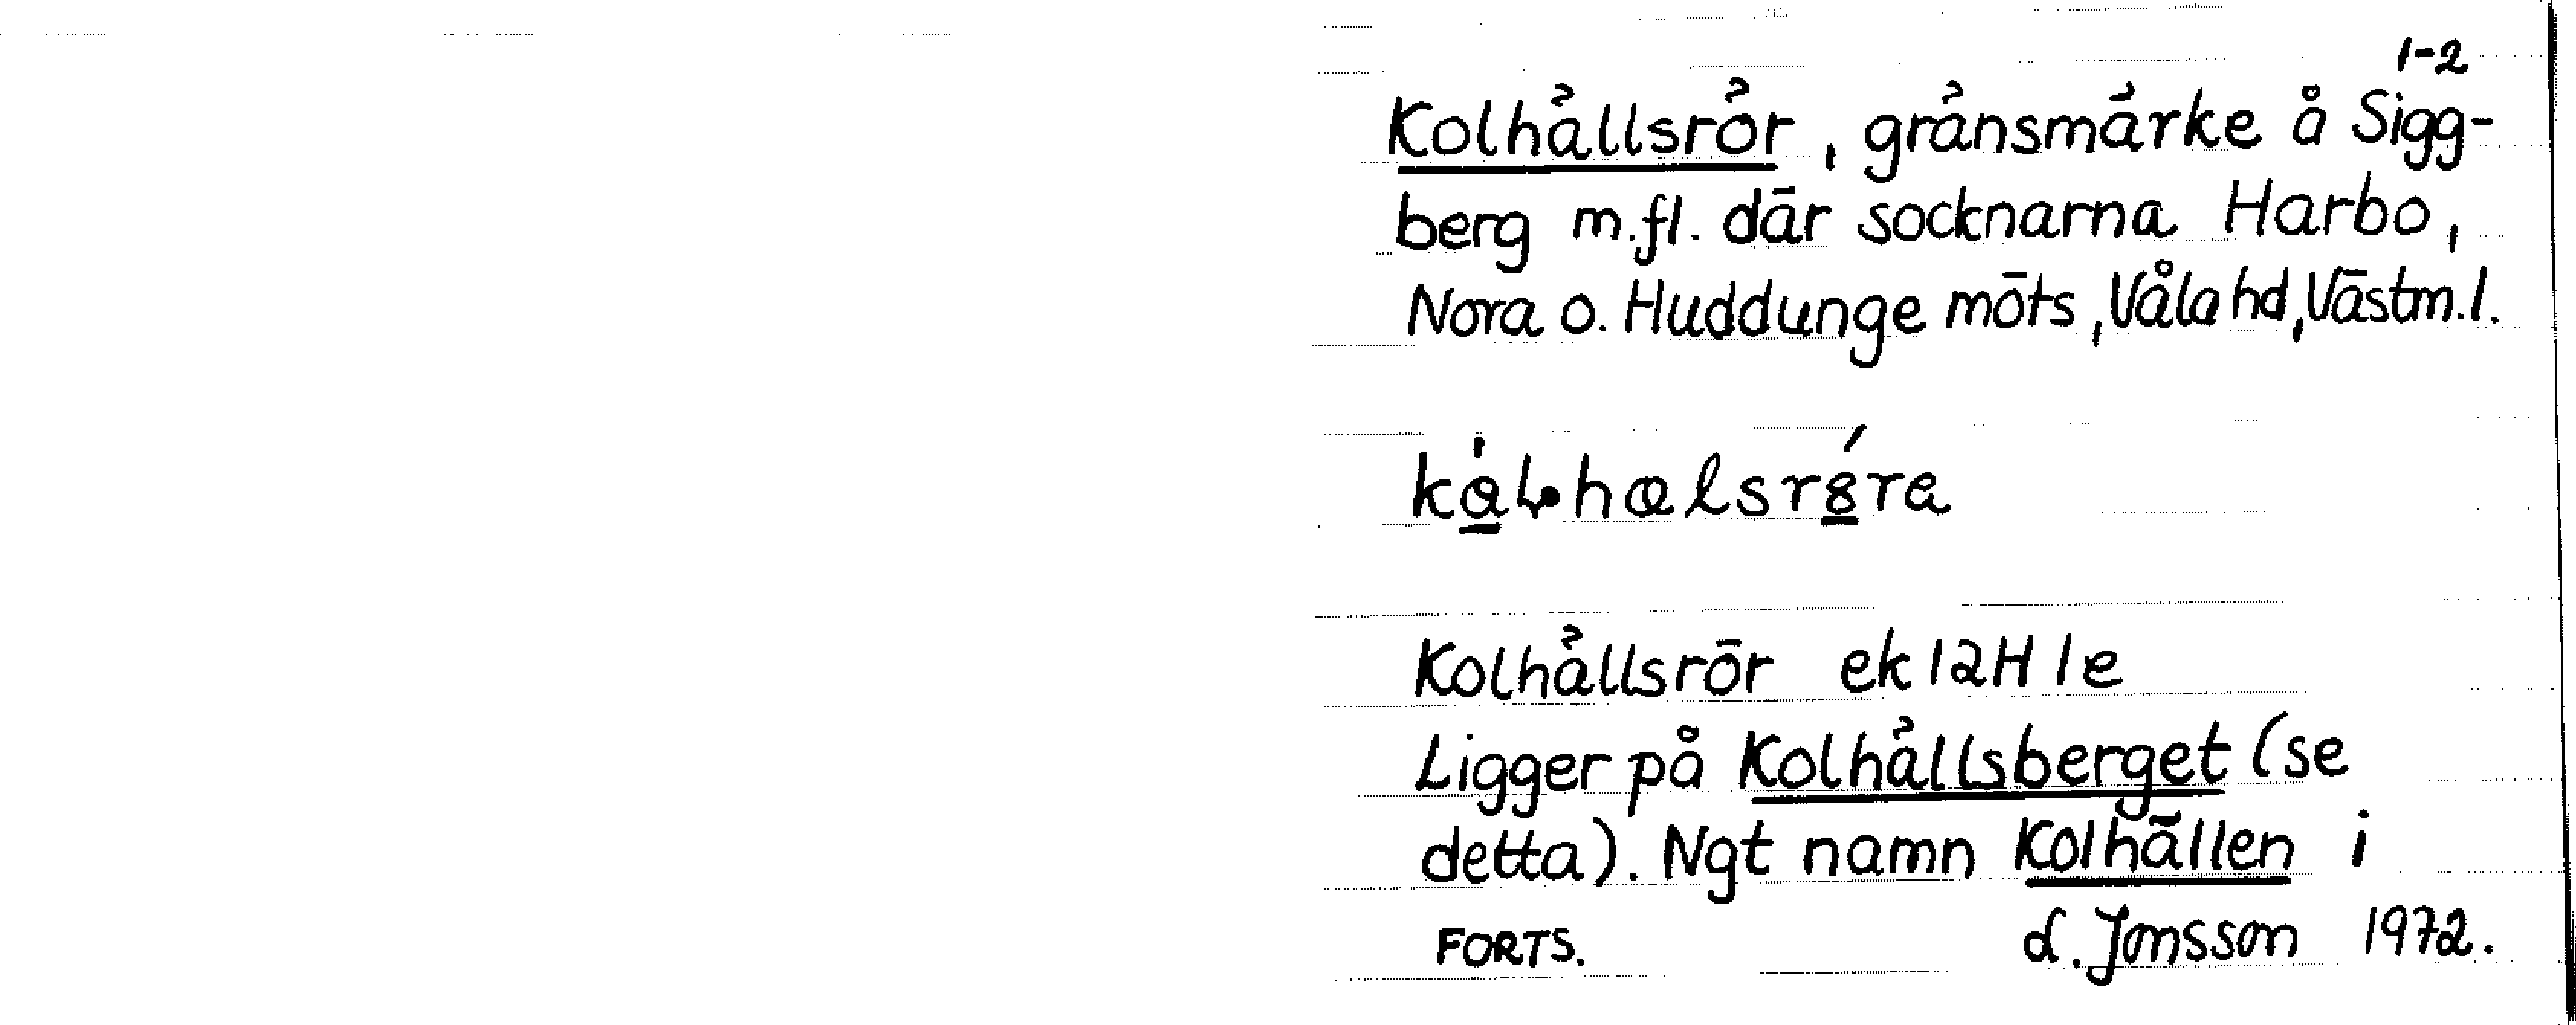 1-2
Kolhällsrör, gränsmärke å Sigg-
berg m.fl. där socknarna Harbo,
Nora o. Huddunge möts, Våla hd, Västm.l.
Kolhällsrör ek 12H 1e
Ligger på Kolhällsberget (se
detta). Ngt namn Kolhällen i
FORTS. Jonsson 1972.